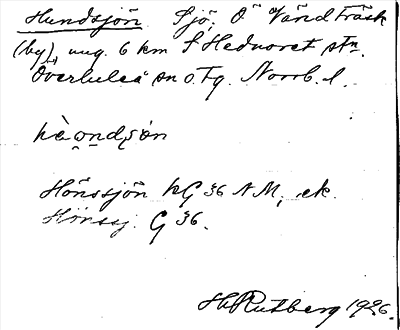 Hundsjön Sjö. Ö Vändträsk
(by), ung. 6 km S Hednoret stn.
Överluleå sn o. Tg. Norrb. l.
hȧo̯nds̯ön
Hönssjön hG 36 N M, ek.
Hönssj. G 36.
H. Rutberg 1926.